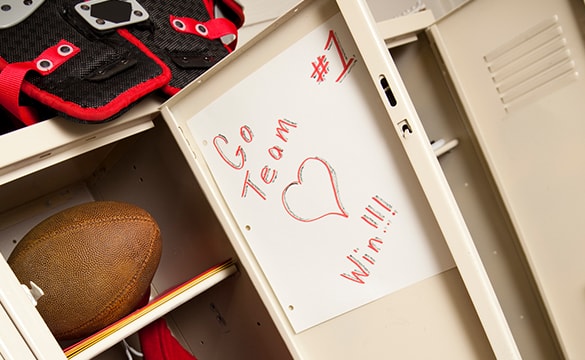 #1
Go
Team
Win!!!!